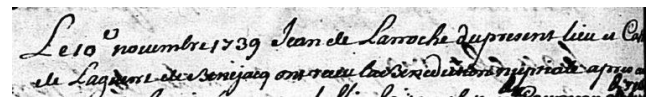 Le 10e novembre 1739 Jean de Larroche du present lieu et Cat
de Laguerre de Benejacq ont receu la Benediction nuptiale apres